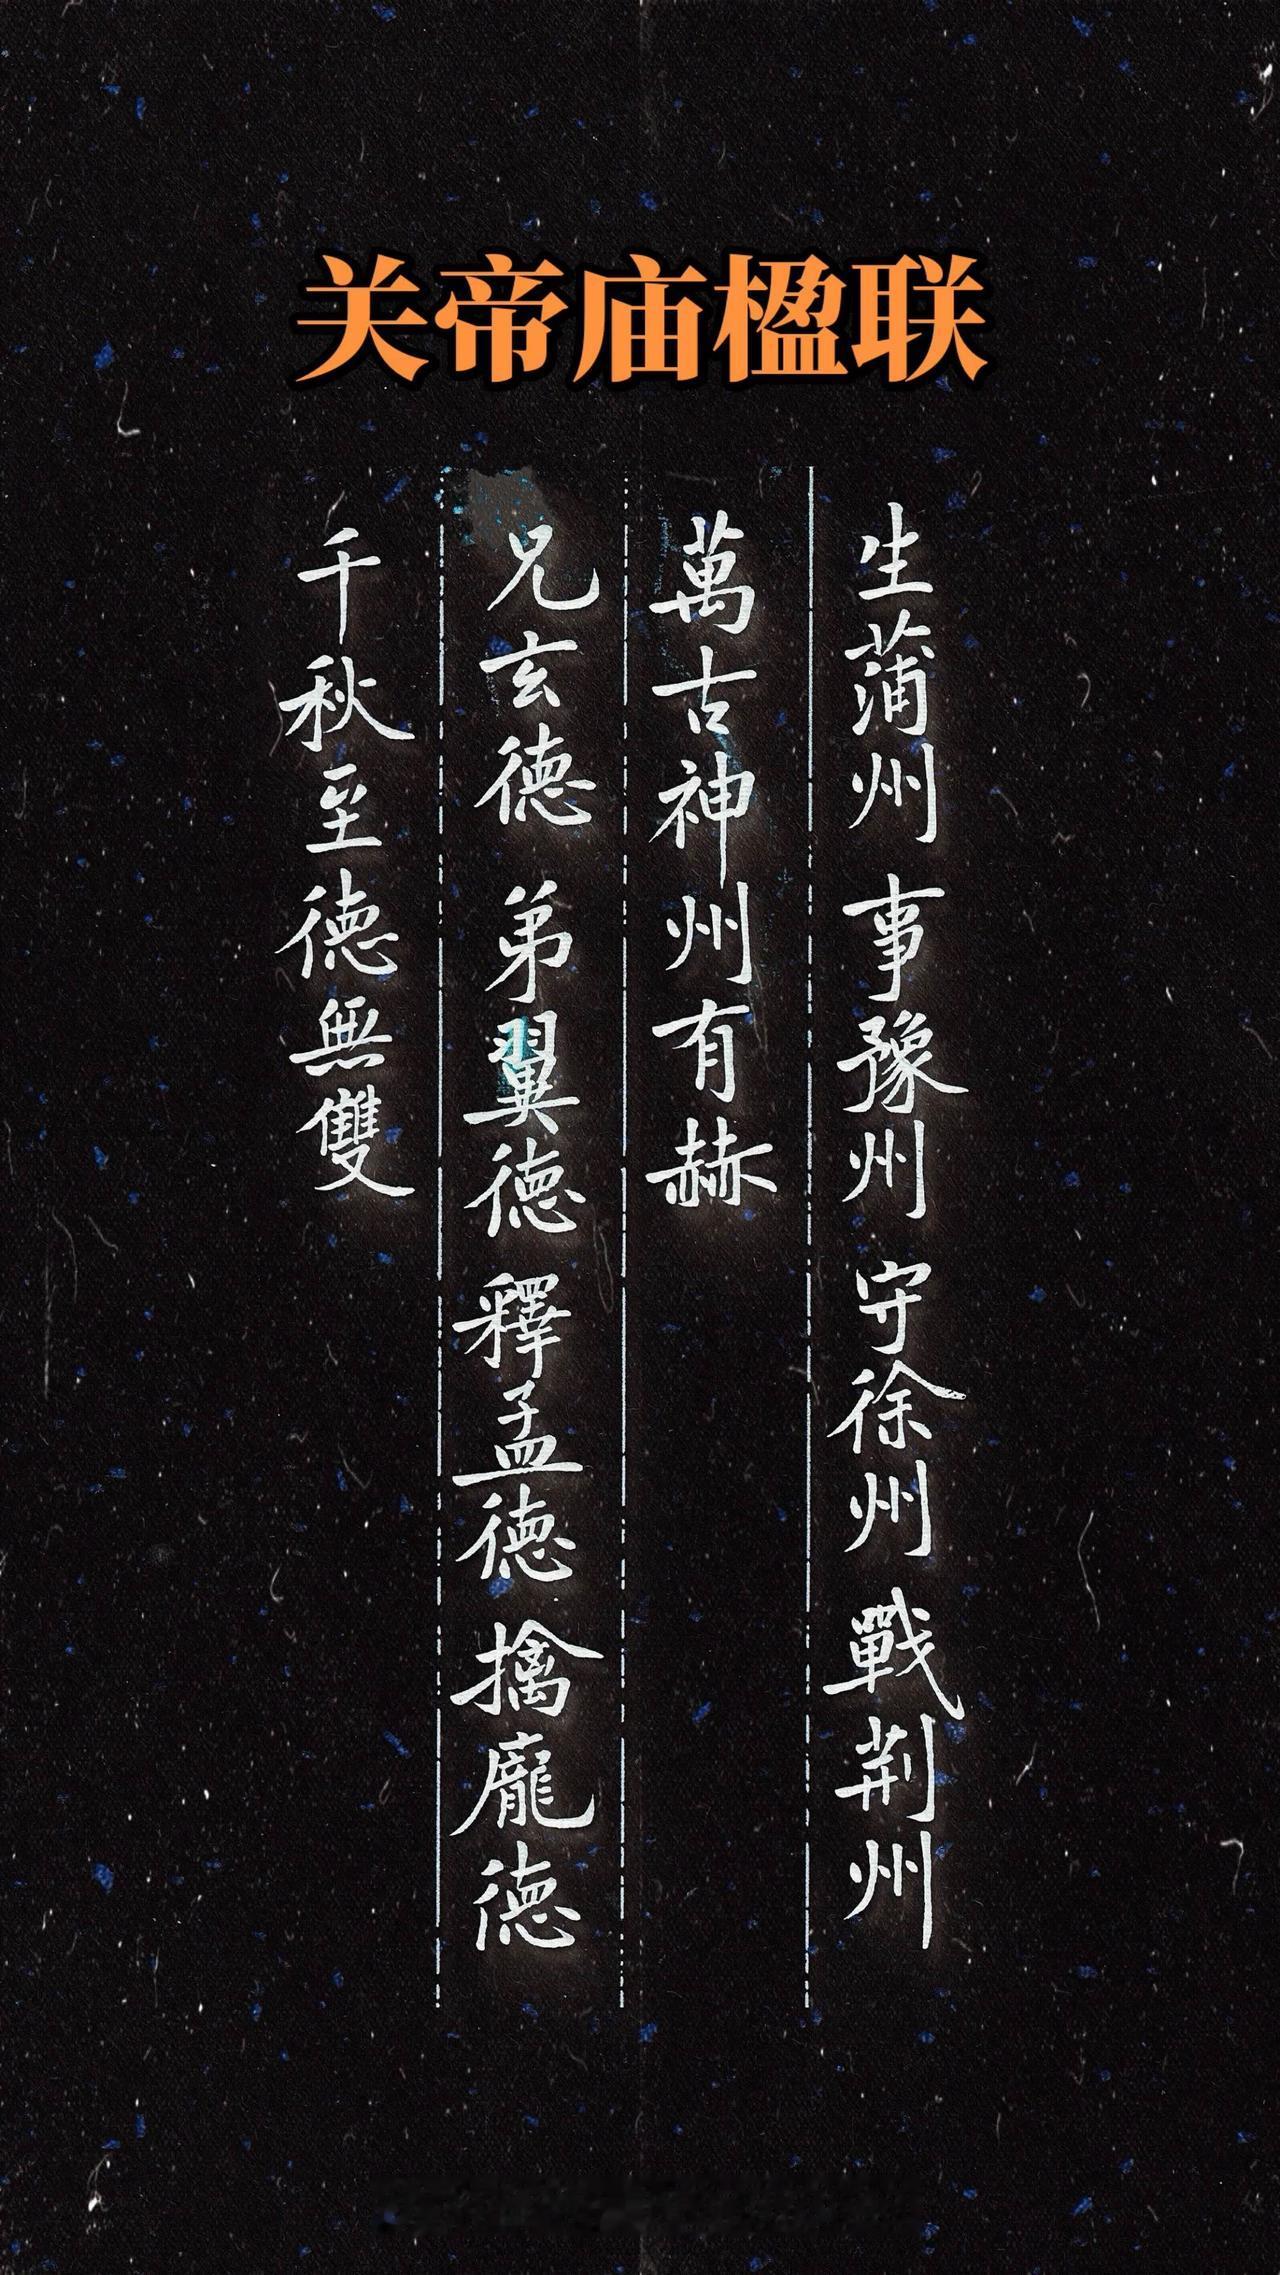 关帝庙楹联
生蒲州 事豫州 守徐州 戰荆州
萬古神州有赫
兄玄德 弟翼德 釋孟德 擒龐德
千秋至德無雙